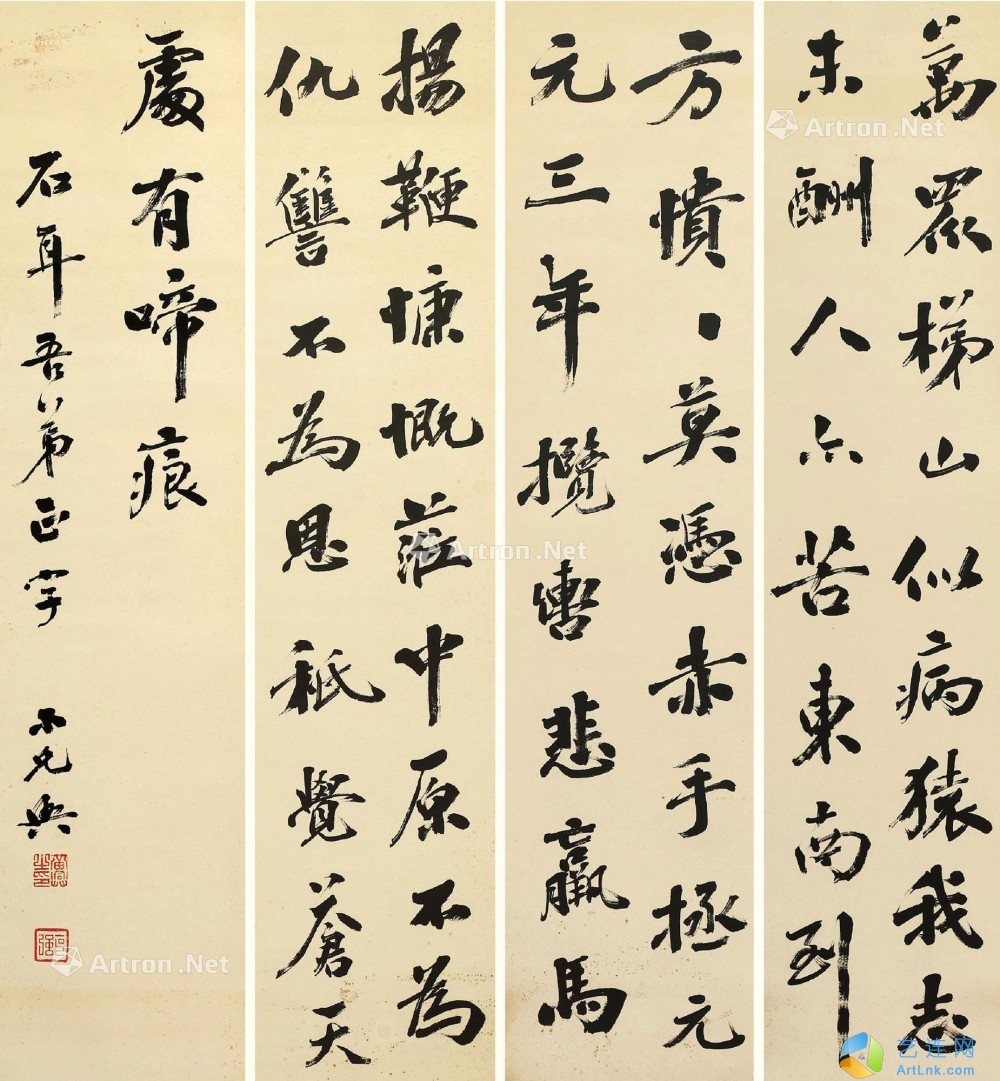 萬眾梯山似病猿我志
未酬人亦苦東南到
方憒、莫憑赤手拯元
元三年攬轡悲羸馬
揚鞭慷慨蒞中原不為
仇讐不為恩祗覺蒼天
處有啼痕
石耳吾弟正字 兄興
Artron.Net
Artron.Net
Artron.Net
艺连网
ArtLnk.com